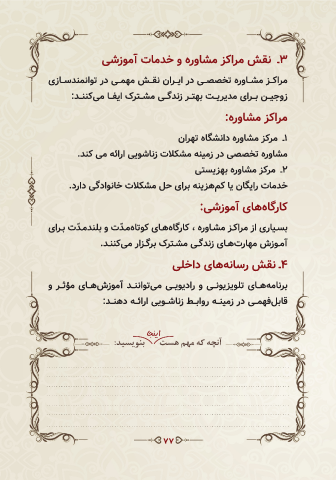 ۳. نقش مراکز مشاوره و خدمات آموزشی
مراکز مشاوره تخصصی در ایران نقش مهمی در توانمندسازی
زوجین برای مدیریت بهتر زندگی مشترک ایفا می‌کنند:
مراکز مشاوره:
۱. مرکز مشاوره دانشگاه تهران
مشاوره تخصصی در زمینه مشکلات زناشویی ارائه می کند.
۲. مرکز مشاوره بهزیستی
خدمات رایگان یا کم‌هزینه برای حل مشکلات خانوادگی دارد.
کارگاه‌های آموزشی:
بسیاری از مراکز مشاوره ، کارگاه‌های کوتاه‌مدّت و بلندمدّت برای
آموزش مهارت‌های زندگی مشترک برگزار می‌کنند.
۴. نقش رسانه‌های داخلی
برنامه‌های تلویزیونی و رادیویی می‌توانند آموزش‌های مؤثر و
قابل‌فهمی در زمینه روابط زناشویی ارائه دهند:
آنچه که مهم هست اینجا بنویسید:
۷۷